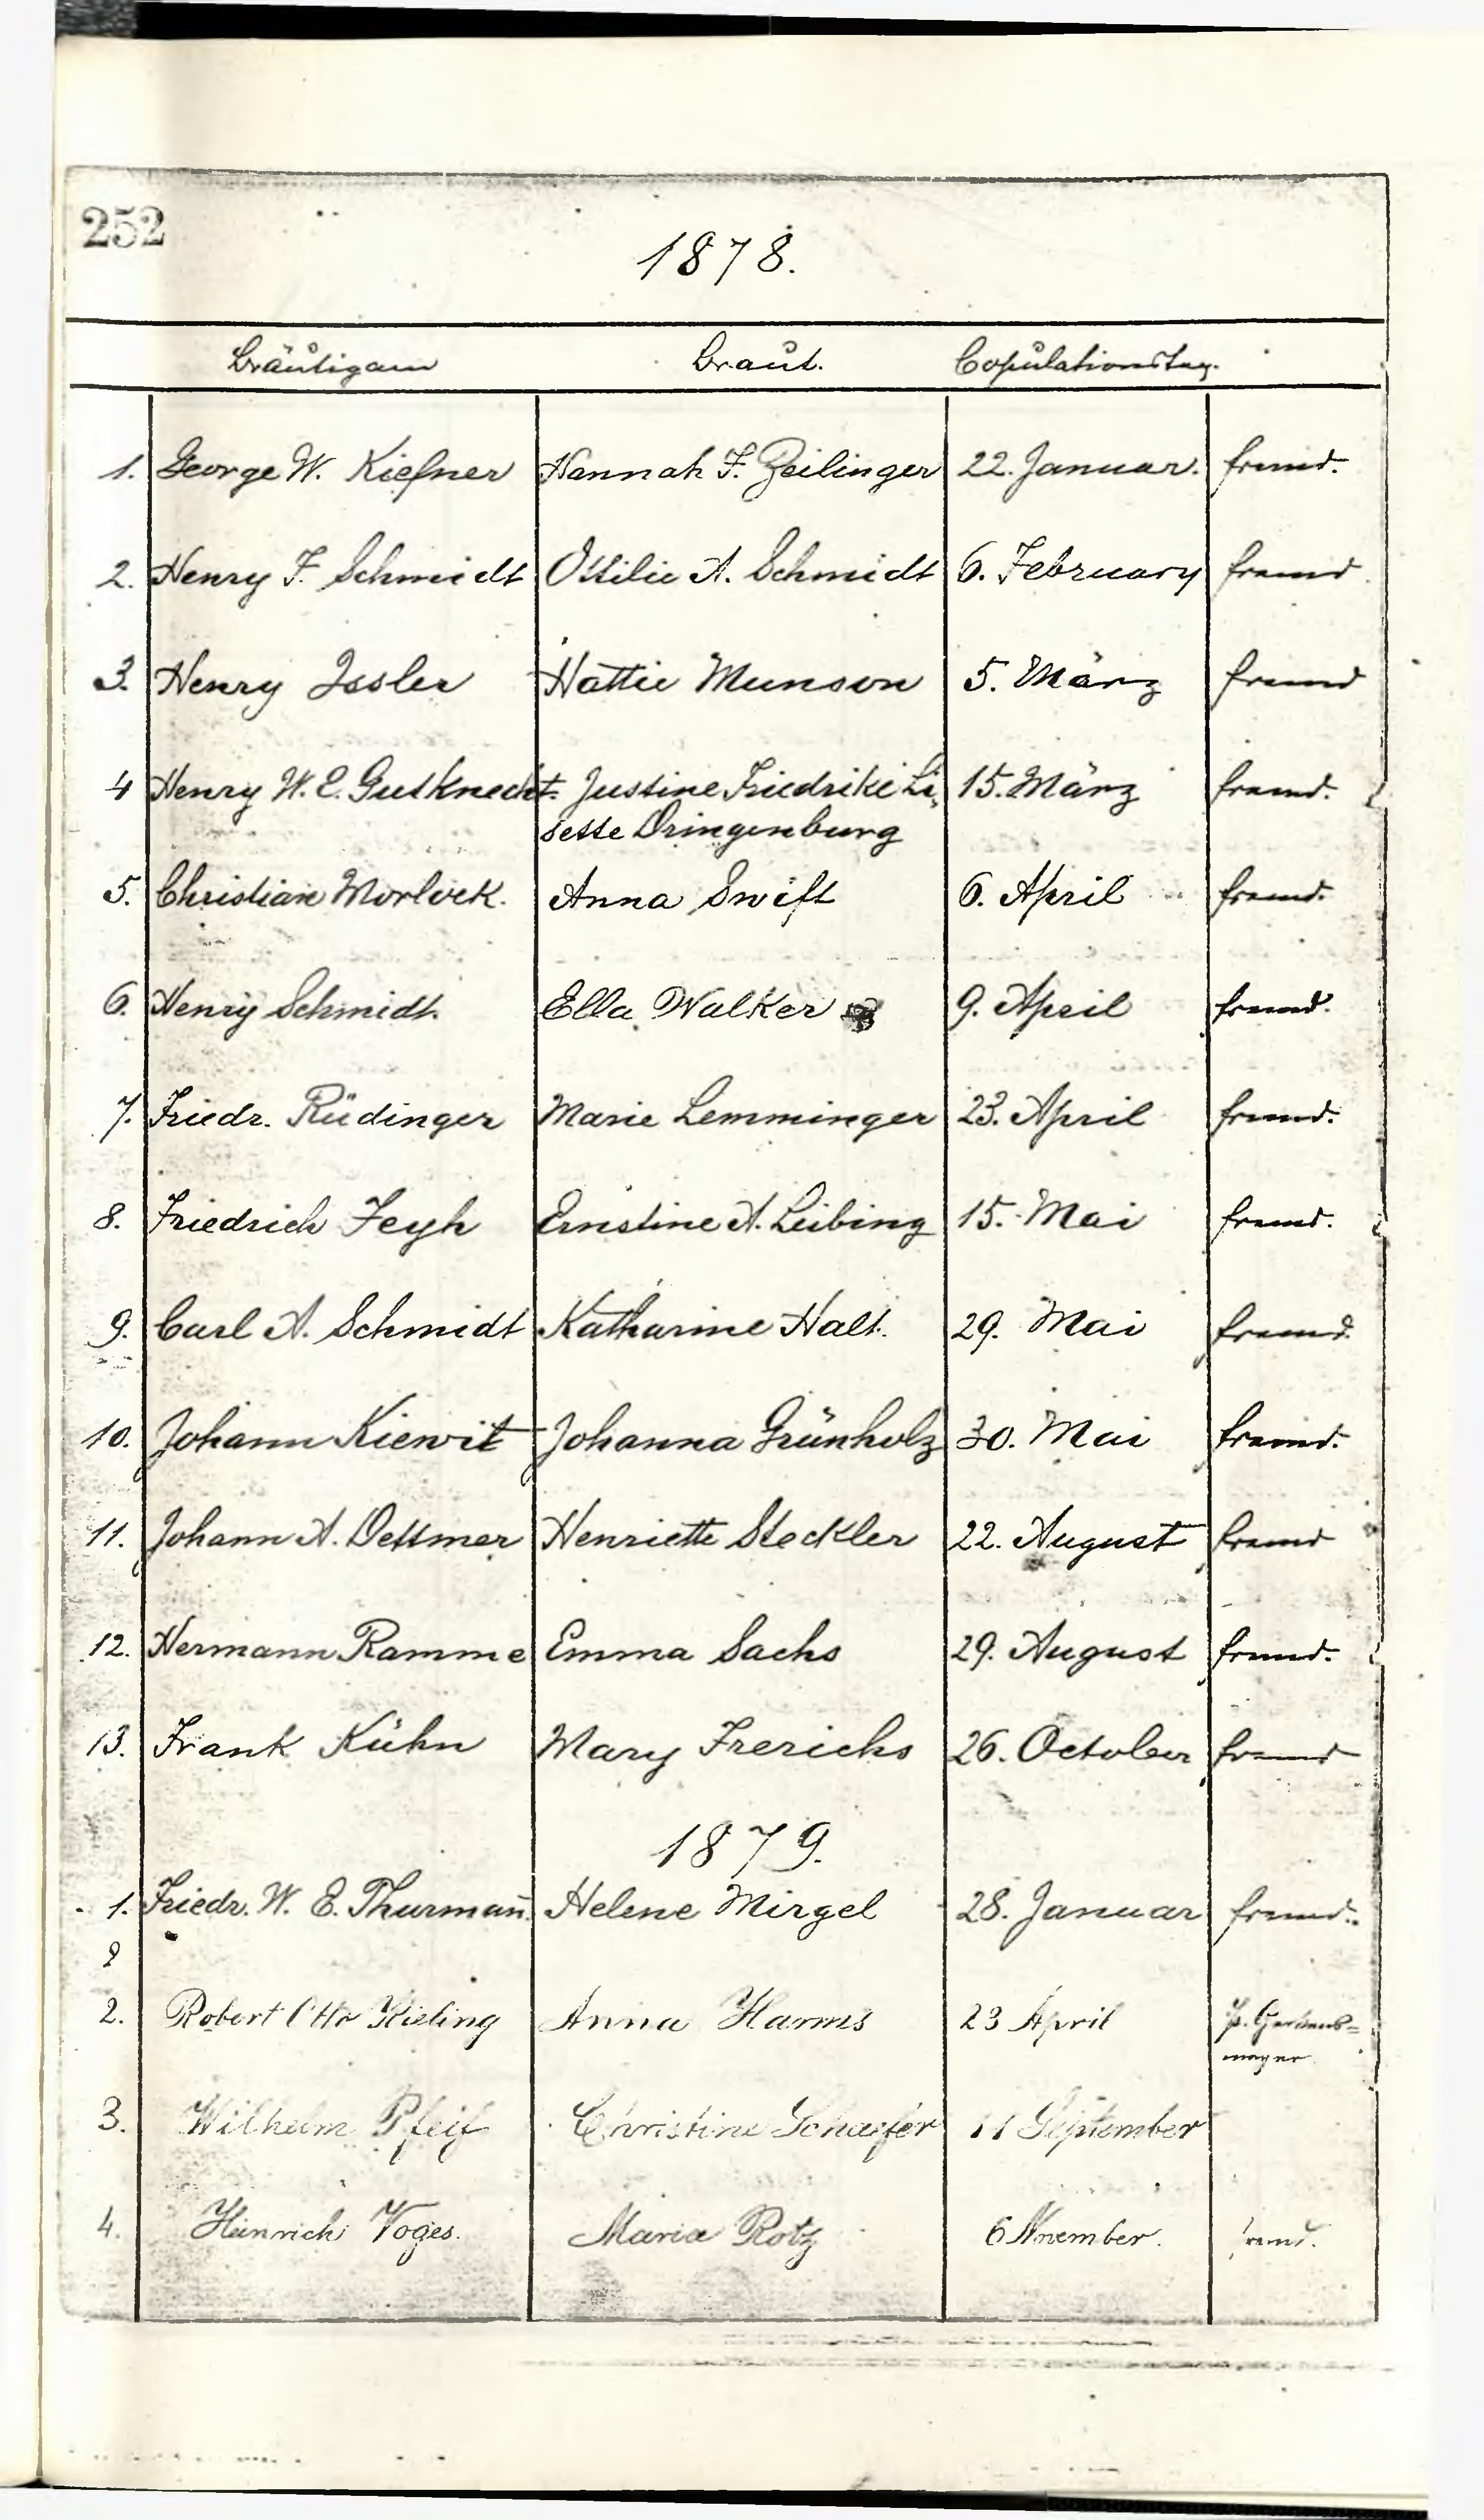 252
1878.
Bräutigam Braut. Copulationstag.
1. George W. Kiefner Hannah F. Zeilinger 22. Januar. fremd.
2. Henry F. Schmidt Ottilie A. Schmidt 6. February fremd
3. Henry Issler Hattie Munson 5. März fremd
4 Henry W. E. Gutknecht. Justine Friedrike Li- 15. März fremd.
sette Dringenburg
5. Christian Morlock. Anna Swift 6. April fremd.
6. Henry Schmidt. Ella Walker 9. April fremd.
7. Friedr. Rüdinger Marie Lemminger 23. April fremd.
8. Friedrich Feyh Ernstine A. Leibing 15. Mai fremd.
9. Carl A. Schmidt Katharine Halt. 29. Mai fremd.
10. Johann Kiewit Johanna Grünholz 30. Mai fremd.
11. Johann A. Dettmer Henriette Steckler 22. August fremd
12. Hermann Ramme Emma Sachs 29. August fremd.
13. Frank Kühn Mary Frerichs 26. October fremd
1879.
1. Friedr. W. E. Thurman̄. Helene Mirgel 28. Januar fremd.
2
2. Robert Otto Kisling Anna Harms 23 April P.
mayer
3. Wilhelm Pfeif Christine Schaefer 11 September
4. Heinrich Voges. Maria Rotz 6 November. fremd.